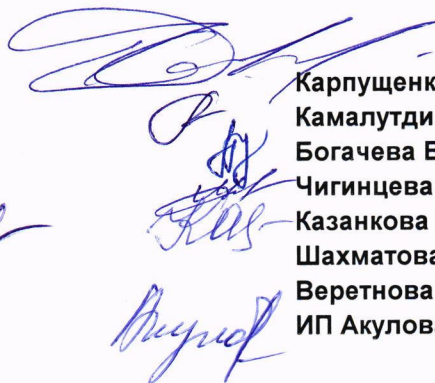 Карпущенк
Камалутди
Богачева Е
Чигинцева
Казанкова
Шахматова
Веретнова
ИП Акулов